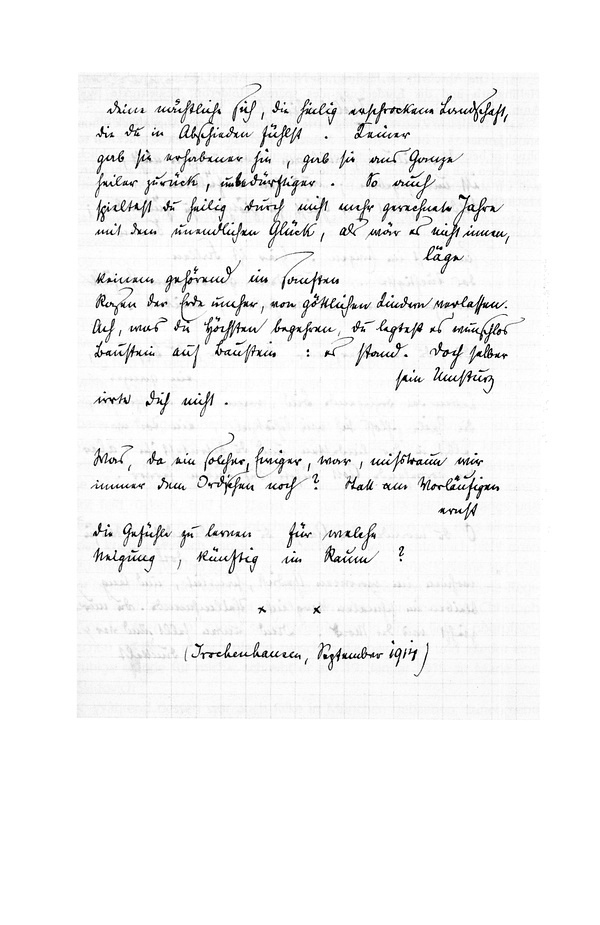 deine nächtliche sich, die heilig erschrockene Landschaft,
die du in Abschieden fühlst . Keiner
gab sie erhabener hin , gab sie ans Ganze
heiler zurück , unbedürftiger . So auch
spieltest du heilig durch nicht mehr gerechnete Jahre
mit dem unendlichen Glück, als wär es nicht innen,
läge
keinem gehörend im sanften
Rasen der Erde umher, von göttlichen Kindern verlassen.
Ach, was die Höchsten begehren, du legtest es wunschlos
Baustein auf Baustein : es stand. Doch selber
sein Umsturz
irrte dich nicht .
Was, da ein solcher, Ewiger, war, mißtraun wir
immer dem Irdischen noch ? Statt am Vorläufigen
ernst
die Gefühle zu lernen für welche
Neigung , künftig im Raum ?
× ×
(Irschenhausen, September 1914)